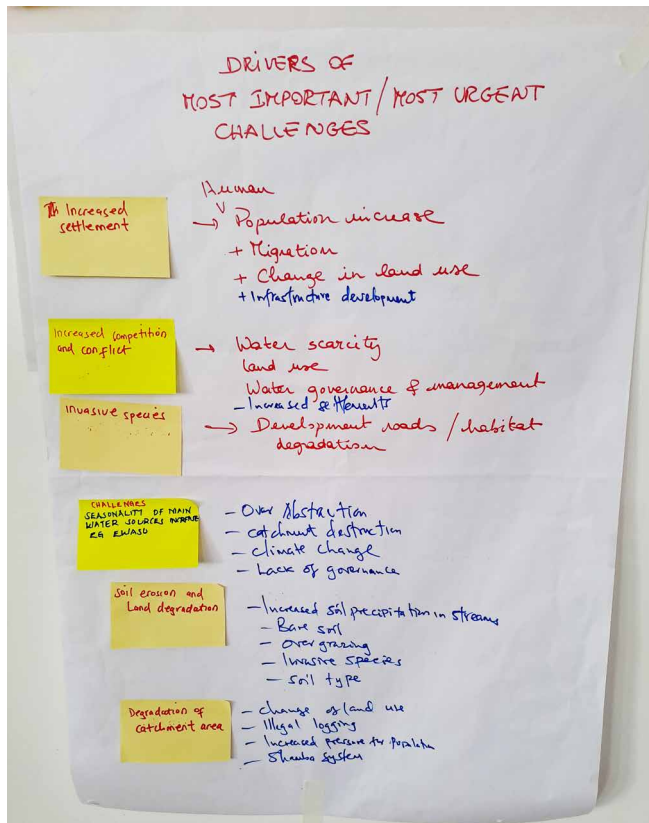 DRIVERS OF
MOST IMPORTANT/MOST URGENT
CHALLENGES
Increased
settlement
Human
→ Population increase
+ Migration
+ Change in land use
+ Infrastructure development
Increased competition
and conflict
→ Water scarcity
land use
Water governance & management
- Increased settlements
Invasive species
→ Development roads / habitat
degradation
CHALLENGES
SEASONALITY OF MAIN
WATER SOURCES INCREASE
EG EWASO
- Over Abstraction
- catchment destruction
- climate change
- Lack of governance
Soil erosion and
Land degradation
- Increased soil precipitation in streams
- Bare soil
- Overgrazing
- Invasive species
- Soil type
Degradation of
catchment area
- change of land use
- Illegal logging
- Increased pressure Population
- Shamba system